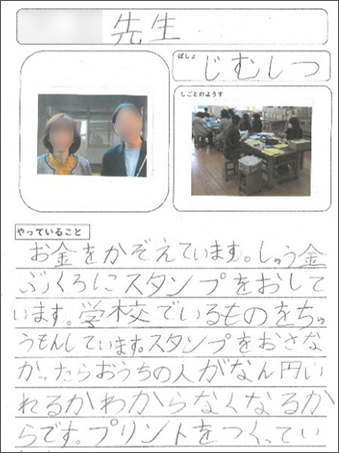 先生
ばしょ
じむしつ
しごとのようす
やっていること
お金をかぞえています。しゅう金
ぶくろにスタンプをおして
います。学校でいるものをちゅ
うもんしています。スタンプをおさな
かったらおうちの人がなん円い
れるかわからなくなるか
らです。プリントをつくってい